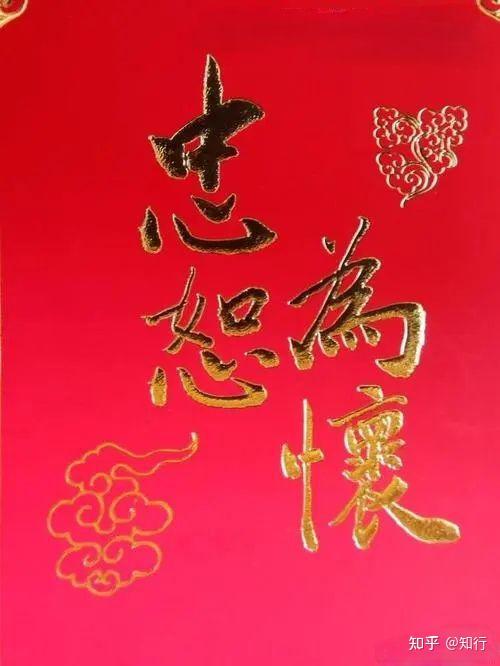 忠恕
為懷
知乎 @知行